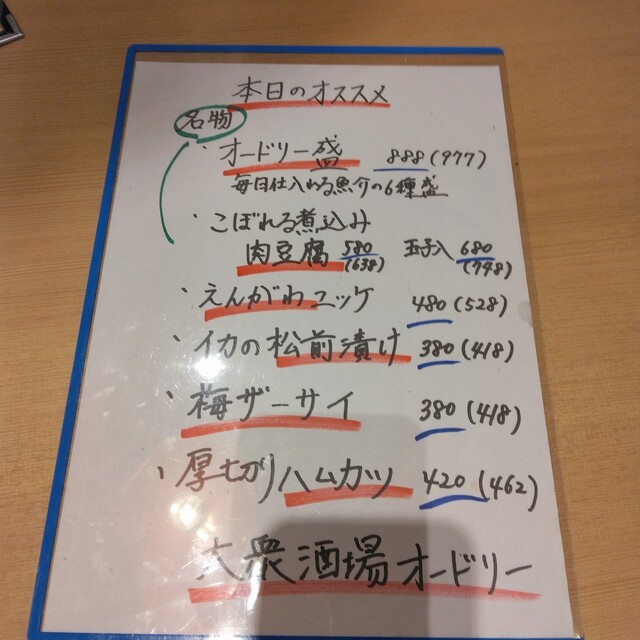 本日のオススメ
名物
・オードリー盛 888(977)
毎日仕入れる魚介の6種盛
・こぼれる煮込み
肉豆腐 580(638) 玉子入 680(748)
・えんがわユッケ 480(528)
・イカの松前漬け 380(418)
・梅ザーサイ 380(418)
・厚切りハムカツ 420(462)
大衆酒場オードリー